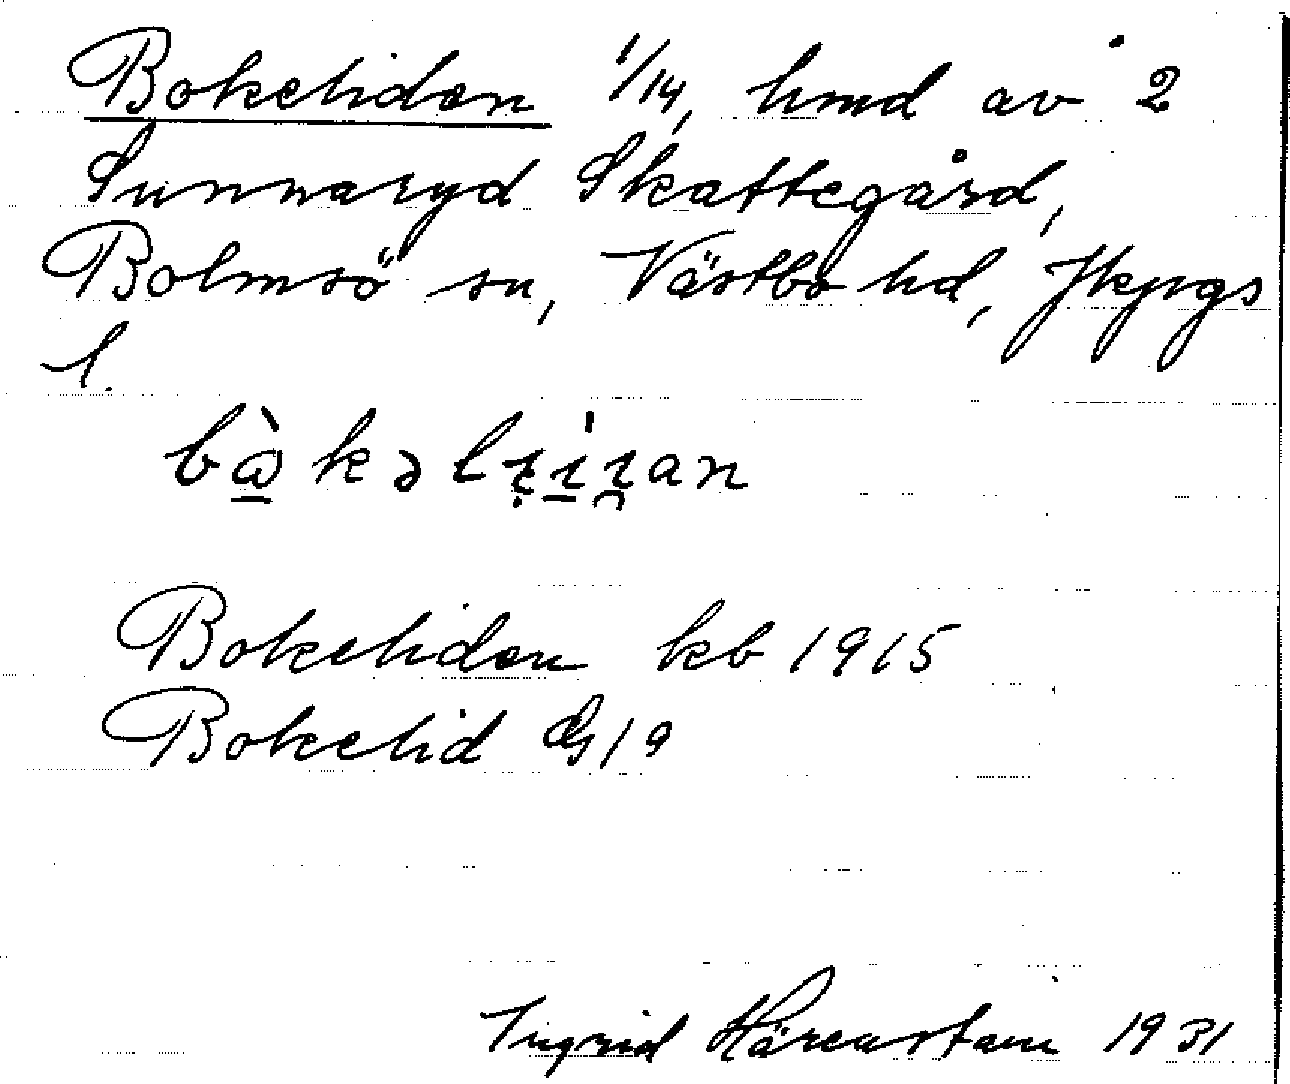 Bokeliden 1/14, hmd av 2
Sunnaryd Skattegård,
Bolmsö sn, Västbo hd, Jkpgs
l.
Bokeliden kb 1915
Bokelid G 19
Ingrid Härenstam 1931